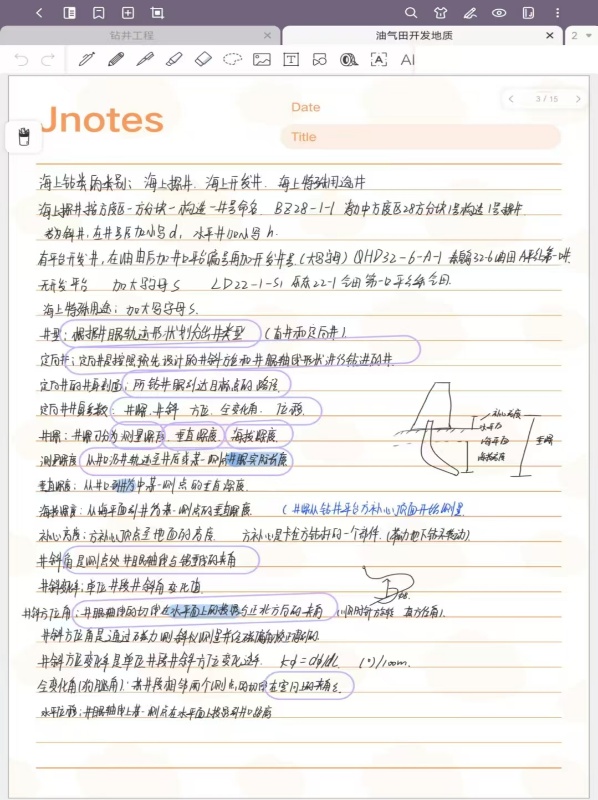 钻井工程
油气田开发地质
2
AI
3/15
Jnotes
Date
Title
海上钻井的类别：海上探井、海上开发井、海上特殊用途井
海上探井按方度区-方分块-构造-井号命名 BZ28-1-1 渤中方度区28方分块1号构造1号探井
若为斜井，在井号后加小写d，水平井加小写h.
有平台开发井，在油田后加平台编号再加开发井号（大写字母）QHD32-6-A-1 秦皇32-6油田A平台第一井
无开发平台 加大写字母S LD22-1-S1
海上特殊用途：加大写字母S.
井型：根据井眼轨迹形状划分的井类型（直井和定向井）.
定向井：定向井是按照预先设计的井斜方位和井眼轴线形状进行钻进的井.
定向井的井身剖面：所钻井眼到达目标点的路径
定向井井身参数：井深.井斜 方位.全变化角. 位移
井深：井深可分为测量深度.垂直深度.海拔深度
测量深度：从井口沿井轨迹至井底或某一测点井眼实际长度
垂直深度：从井口到井中某一测点的垂直深度.
海拔深度：从海平面到井中某一测点的垂直深度.（井深从钻井平台方补心顶面开始测量
补心高度：方补心顶点至地面的高度. 方补心是卡住方钻杆的一个部件.
补心高度
水平面
海平面
海拔深度
垂深
井斜角是测点处井眼轴线与铅垂线的夹角
井斜变化率：单位井段井斜角变化值
井斜方位角：井眼轴线的切线在水平面上的投影与正北方向的夹角（顺时针旋转 真方位角）.
井斜方位变化率是单位井段井斜方位变化速率. Kφ=dφ/dL (°)/100m.
全变化角（狗腿角）：某井段相邻两个测点的切线在空间上的夹角ε.
水平位移：井眼轴线上某一测点在水平面上投影到井口距离